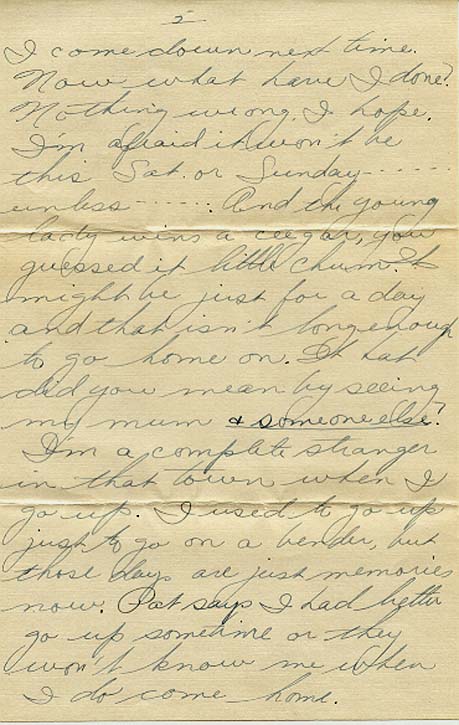 5
I come down next time.
Now what have I done?
Nothing wrong I hope.
I'm afraid it won't be
this Sat. or Sunday------
unless ------. And the young
lady wins a ceegar, you
guessed it little chum. It
might be just for a day
and that isn't long enough
to go home on. What
did you mean by seeing
my mum & someone else?
I'm a complete stranger
in that town when I
go up. I used to go up
just to go on a bender, but
those days are just memories
now. Pat says I had better
go up sometime or they
won't know me when
I do come home.